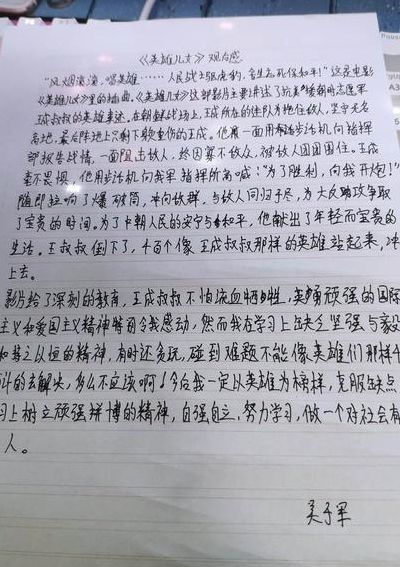 《英雄儿女》观后感
"风烟滚滚,唱英雄……人民战士驱虎豹,舍生忘死保和平!"这是电影
《英雄儿女》里的插曲。《英雄儿女》这部影片主要讲述了抗美援朝时志愿军
王成叔叔的英雄事迹。在朝鲜战场上,王成所在的连队为拖住敌人,坚守无名
高地,最后阵地上只剩下胶重伤的王成。他一面用步话机向指挥
部报告战情,一面阻击敌人,终因寡不敌众,被敌人团团围住。王成
毫不畏惧,他用步话机向我军指挥所高喊:"为了胜利,向我开炮!"
随即拉响了爆破筒,冲向敌群,与敌人同归于尽,为大反攻争取
了宝贵的时间。为了中朝人民的安宁与和平,他献出了年轻而宝贵的
生活。王叔叔倒下了,千百个像王成叔叔那样的英雄站起来,冲
上去。
影片给了深刻的教育,王成叔叔不怕流血牺牲,英勇顽强的国际
主义和爱国主义精神特别令我感动,然而我在学习上缺乏坚强与毅
和持之以恒的精神,有时还贪玩,碰到难题不能像英雄们那样千
计的去解决,多么不应该啊!今后我一定以英雄为榜样,克服缺点
习上树立顽强拼博的精神,自强自立,努力学习,做一个对社会有
人。
吴子军